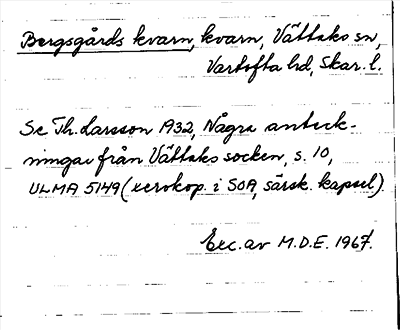 Bergsgårds kvarn, kvarn, Vättaks sn,
Vartofta hd, Skar. l.
Se Th. Larsson 1932, Några anteck-
ningar från Vättaks socken, s. 10,
ULMA 5149 (xerokop. i SOA, särsk. kapsel)
Exc. av M.D.E. 1967.